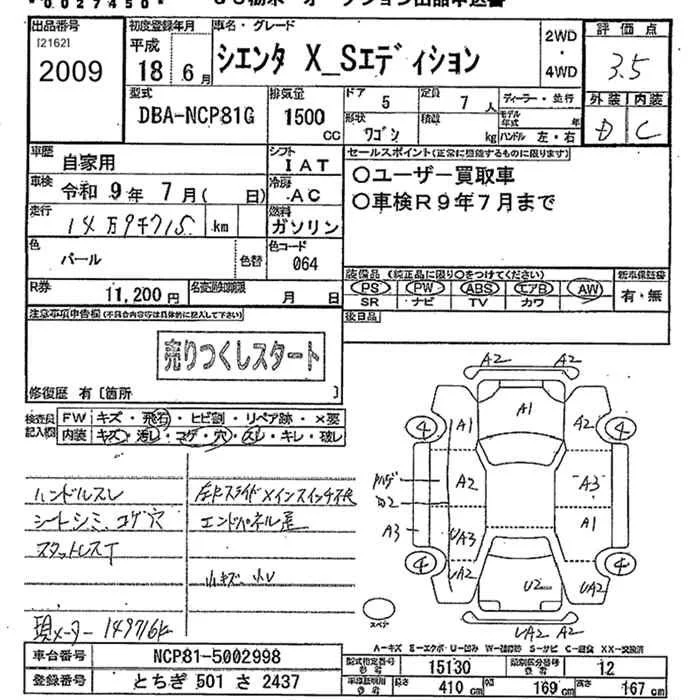 *0027450*
出品番号 初度登録年月 車名・グレード 評価点
[2162] 2009
平成 18 6月
シエンタ X_Sエディション
2WD・4WD
3.5
外装 内装
D C
型式 DBA-NCP81G
排気量 1500 CC
ドア 5 定員 7 人
形状 ワゴン 積載 kg
ディーラー・並行
モデル年式 年
ハンドル 左・右
車歴 自家用
シフト IAT
車検 令和 9年 7月( 日)
冷房 AC
走行 14万9千715 km
燃料 ガソリン
色 パール 色替
色コード 064
R券 11,200円
名変通知期限 月 日
セールスポイント(正常に機能するものに限ります)
○ユーザー買取車
○車検R9年7月まで
装備品(純正品に限り○をつけてください) 新車保証書
PS PW ABS エアB AW 有・無
SR ナビ TV カワ
後日品
注意事項申告欄(不具合内容等は具体的に記入して下さい)
売りつくしスタート
修復歴 有〔箇所 〕
検査員記入欄
FW キズ・飛石・ヒビ割・リペア跡・×要
内装 キズ・汚レ・コゲ・穴・スレ・キレ・破レ
ハンドルスレ
シートシミ、コゲ穴
スタットレスT
左Rスライドメインスイッチ不良
エンドパネル凹
小キズ、小U
現メーター 149716k
A2 A2
A1
4 A1 A2 4
A2 A3
A3 UA3 A1
4 UA2 U2 UA2 4
UA2 A2
スペア
A-キズ E-エクボ U-凹み W-補修跡 S-サビ C-腐食 XX-交換済
車台番号 NCP81-5002998
登録番号 とちぎ 501 さ 2437
型式指定番号 15130 類別区分番号 12
長さ 410 cm 幅 169 cm 高さ 167 cm